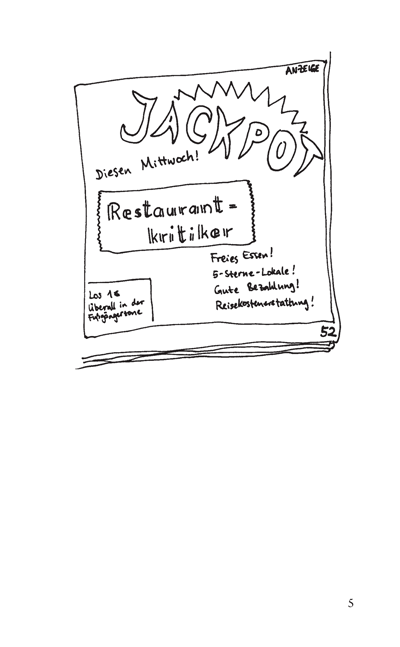 ANZEIGE
JACKPOT
Diesen Mittwoch!
Restaurant-
kritiker
Freies Essen!
5-Sterne-Lokale!
Gute Bezahlung!
Reisekostenerstattung!
Los 1€
überall in der
Fußgängerzone
52
5